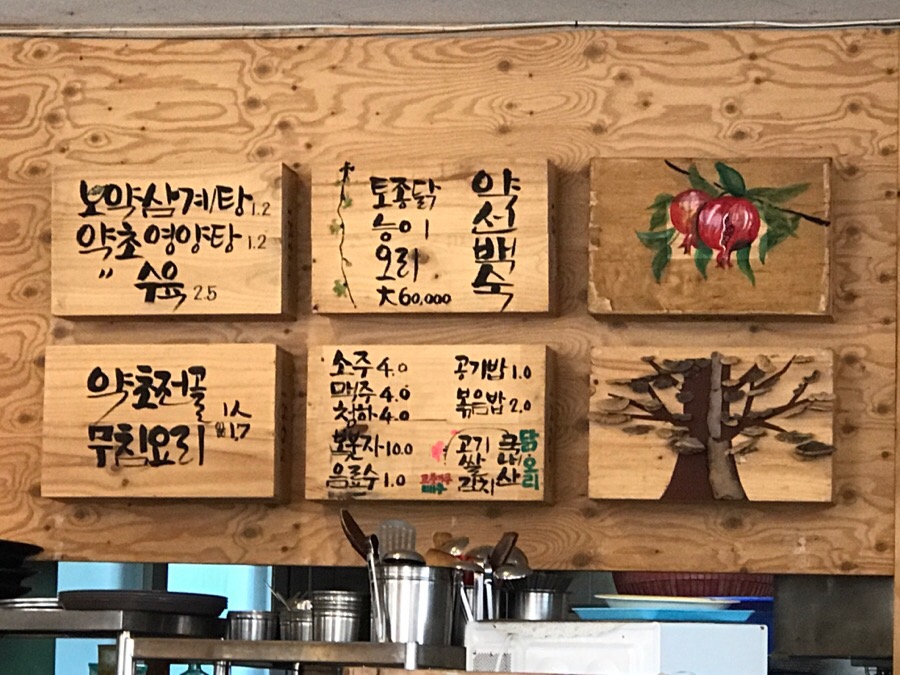 보약삼계탕 1.2
약초영양탕 1.2
" 수육 2.5
약선백숙
토종닭
송이
오리
大 60,000
약초전골
무침요리
1人 1.7
소주 4.0
맥주 4.0
청하 4.0
복분자 10.0
음료수 1.0
공기밥 1.0
볶음밥 2.0
고기
쌀
김치
국내산
닭
오리